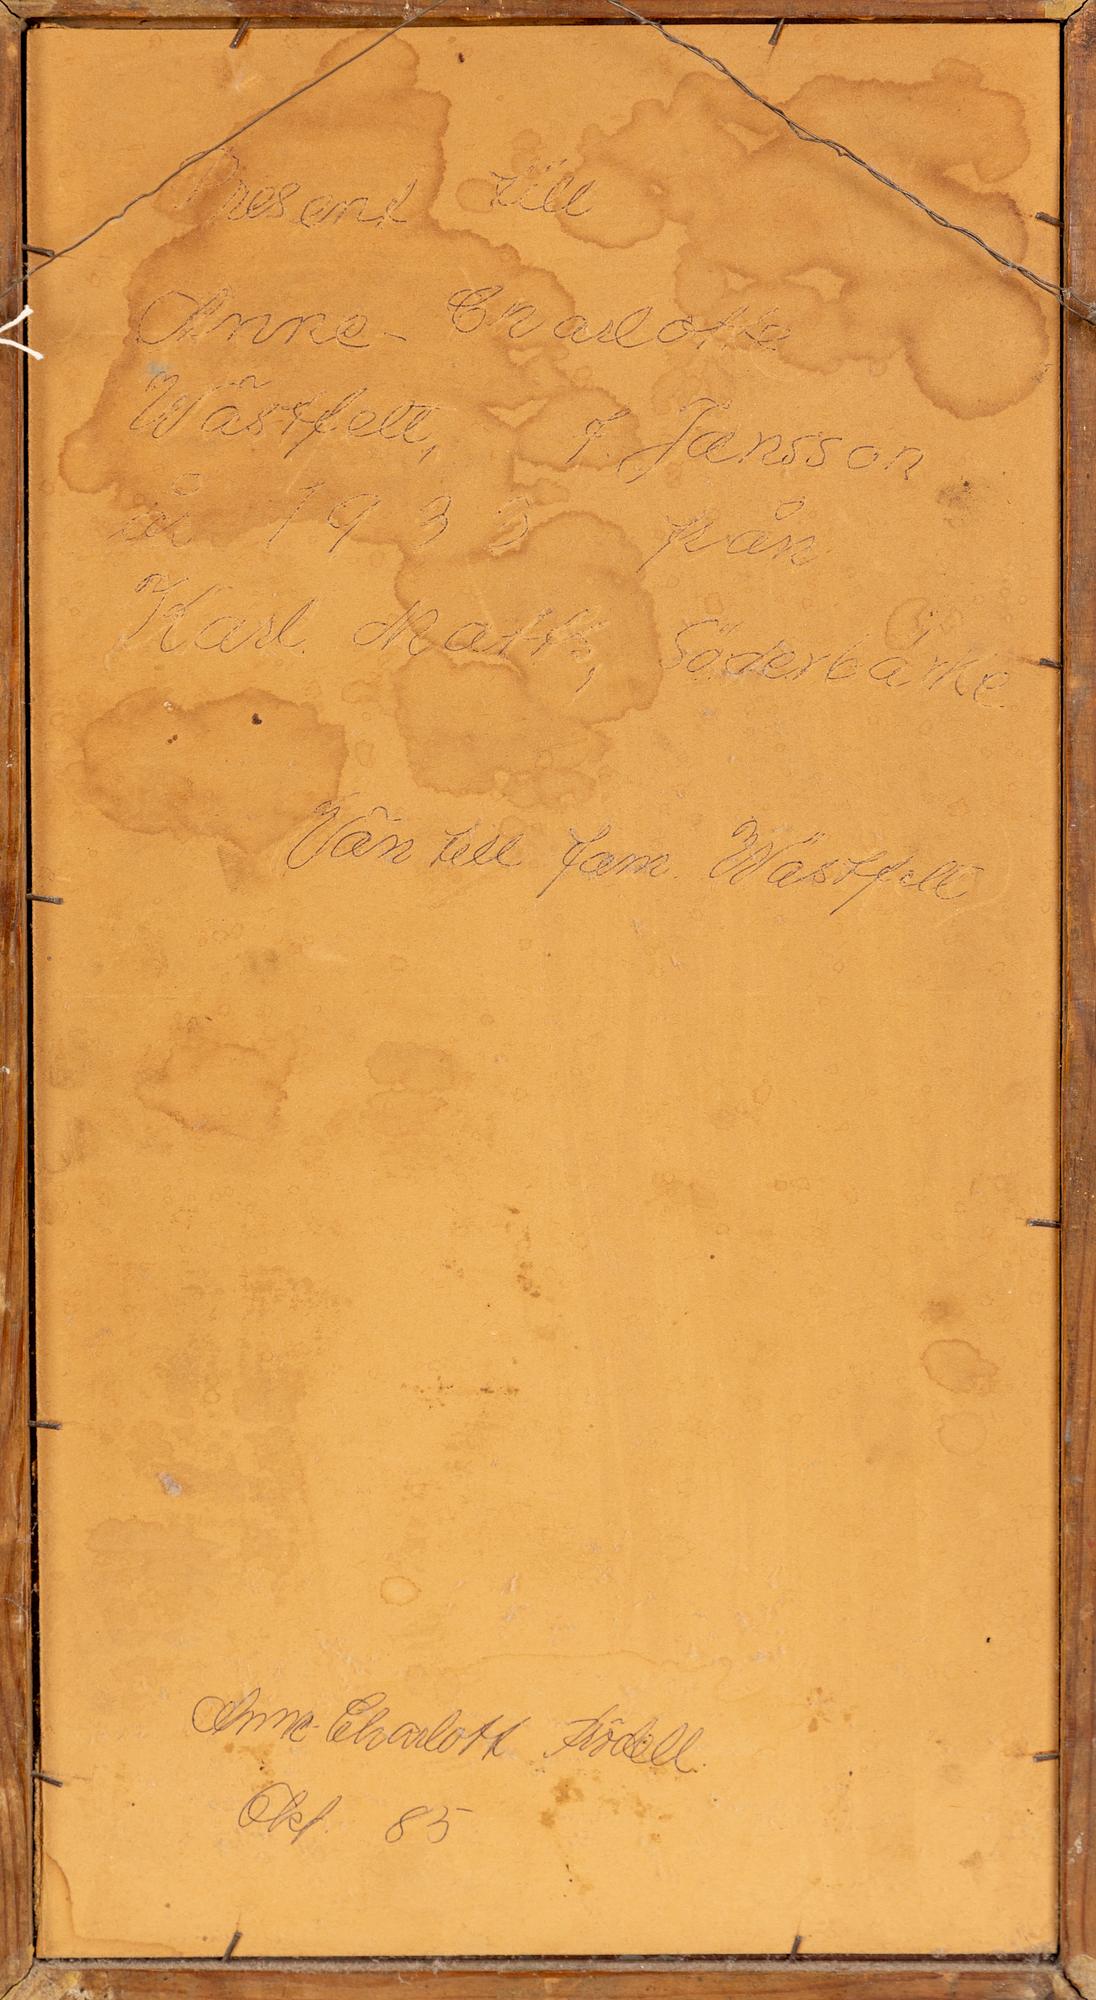 Present till
Anne- Charlotte
Wästfelt, f. Jansson
år 1933 från
Karl Matts, Söderbärke
Vän till fam. Wästfelt
Anne-Charlott
Okt 85